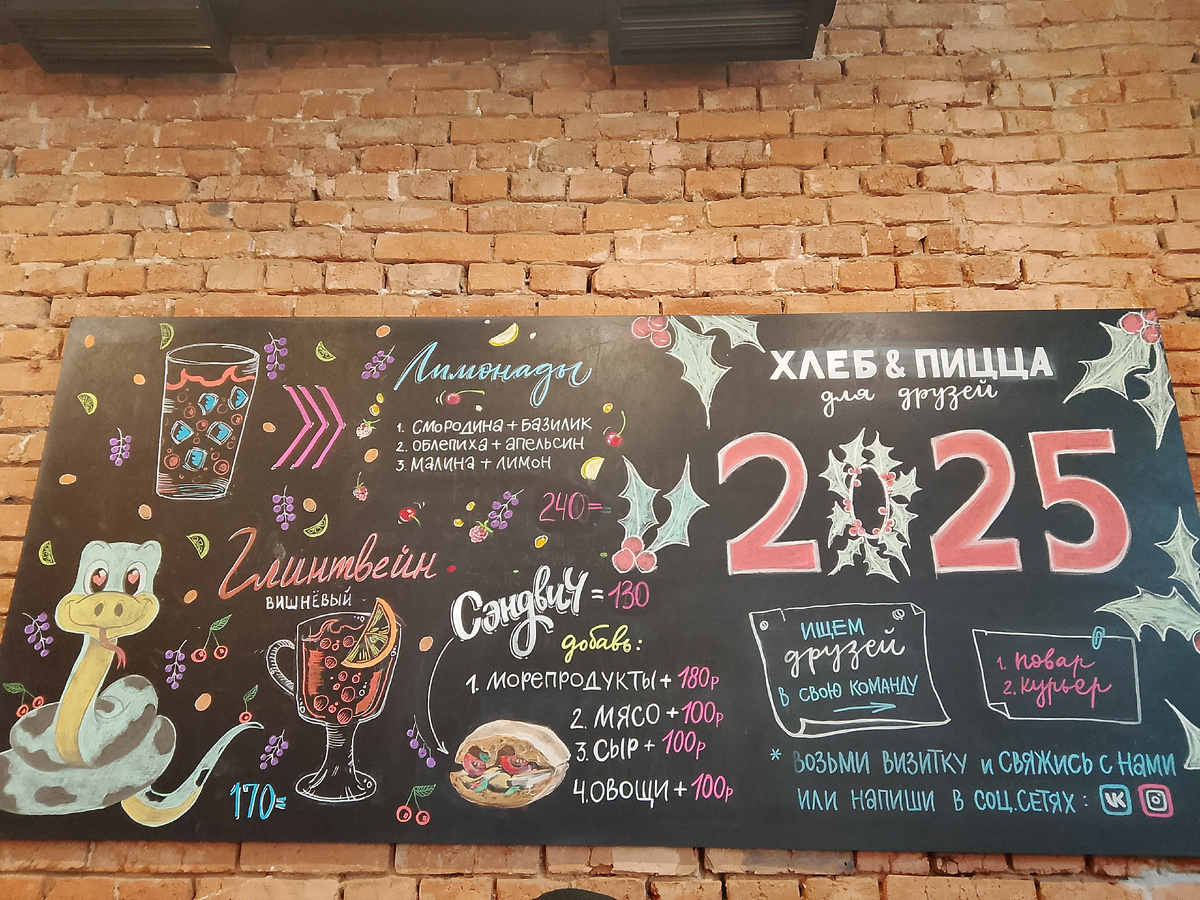 Лимонады
1. Смородина + Базилик
2. Облепиха + апельсин
3. Малина + лимон
240=
Глинтвейн
вишнёвый
170=
Сэндвич = 130
добавь:
1. Морепродукты + 180р
2. Мясо + 100р
3. Сыр + 100р
4. Овощи + 100р
ХЛЕБ & ПИЦЦА
для друзей
2025
ИЩЕМ
друзей
в свою команду
1. Повар
2. Курьер
* Возьми визитку и свяжись с нами
или напиши в соц.сетях:
VK